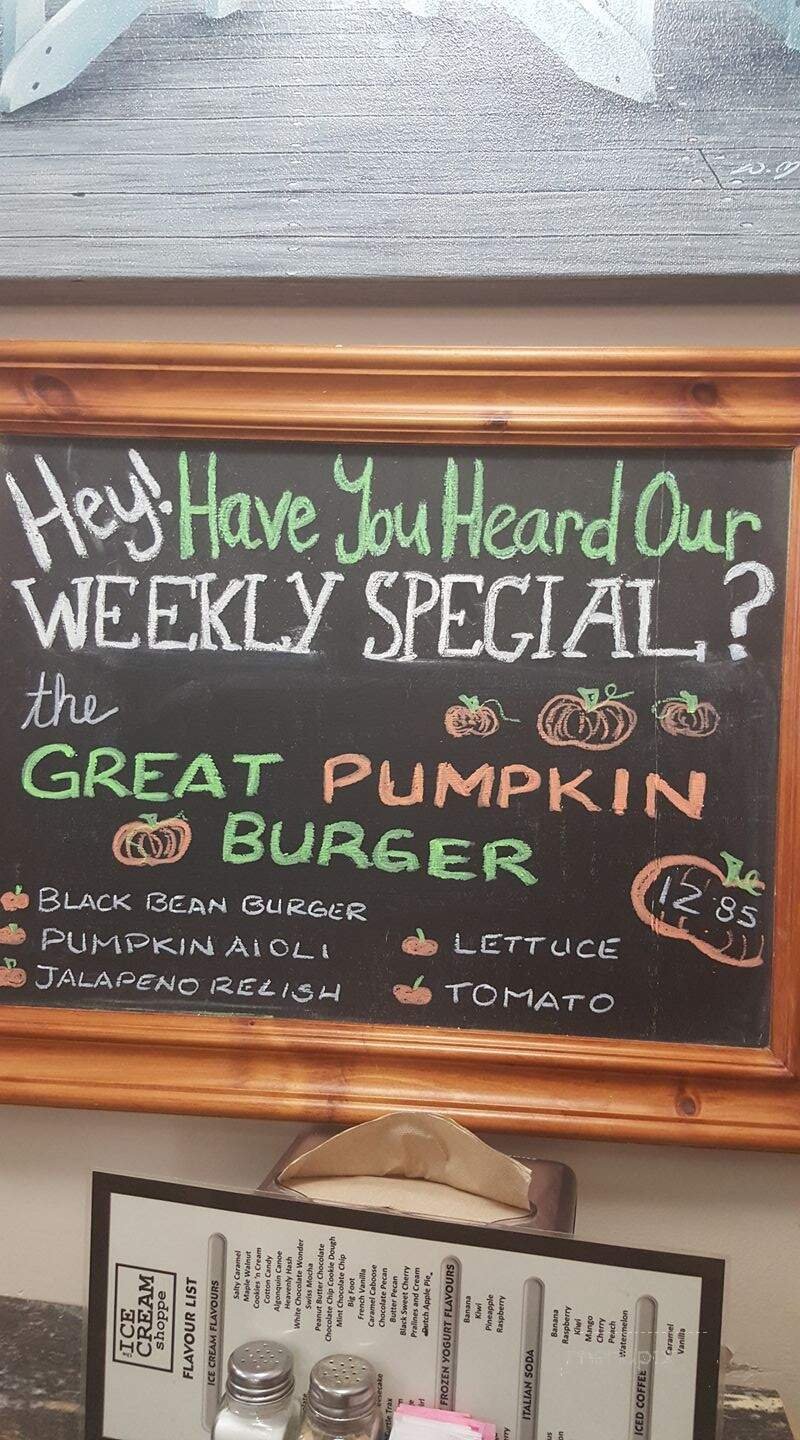 Hey! Have You Heard Our
WEEKLY SPECIAL?
the
GREAT PUMPKIN
BURGER
BLACK BEAN BURGER
PUMPKIN AIOLI
JALAPENO RELISH
LETTUCE
TOMATO
12.85
THE
ICE
CREAM
shoppe
FLAVOUR LIST
ICE CREAM FLAVOURS
Salty Caramel
Maple Walnut
Cookies 'n Cream
Cotton Candy
Algonquin Canoe
Heavenly Hash
White Chocolate Wonder
Swiss Mocha
Peanut Butter Chocolate
Chocolate Chip Cookie Dough
Mint Chocolate Chip
Big Foot
French Vanilla
Caramel Caboose
Chocolate Pecan
Butter Pecan
Black Sweet Cherry
Pralines and Cream
Dutch Apple Pie
FROZEN YOGURT FLAVOURS
Banana
Kiwi
Pineapple
Raspberry
ITALIAN SODA
Banana
Raspberry
Kiwi
Mango
Cherry
Peach
Watermelon
ICED COFFEE
Caramel
Vanilla